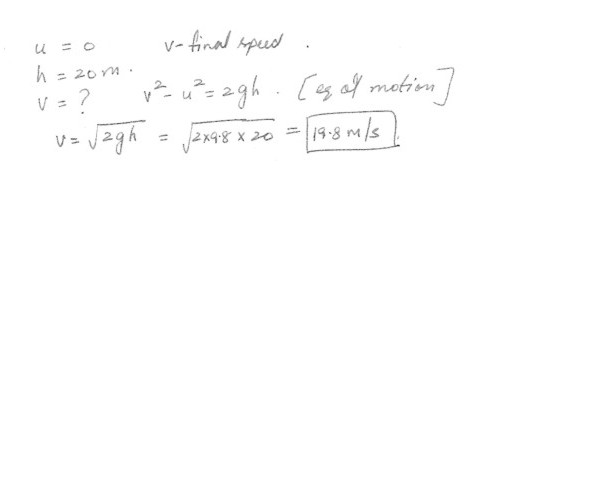 u = 0 v - final speed .
h = 20 m .
v = ? v² - u² = 2gh . [eq of motion]
v = √2gh = √2×9.8×20 = 19.8 m/s